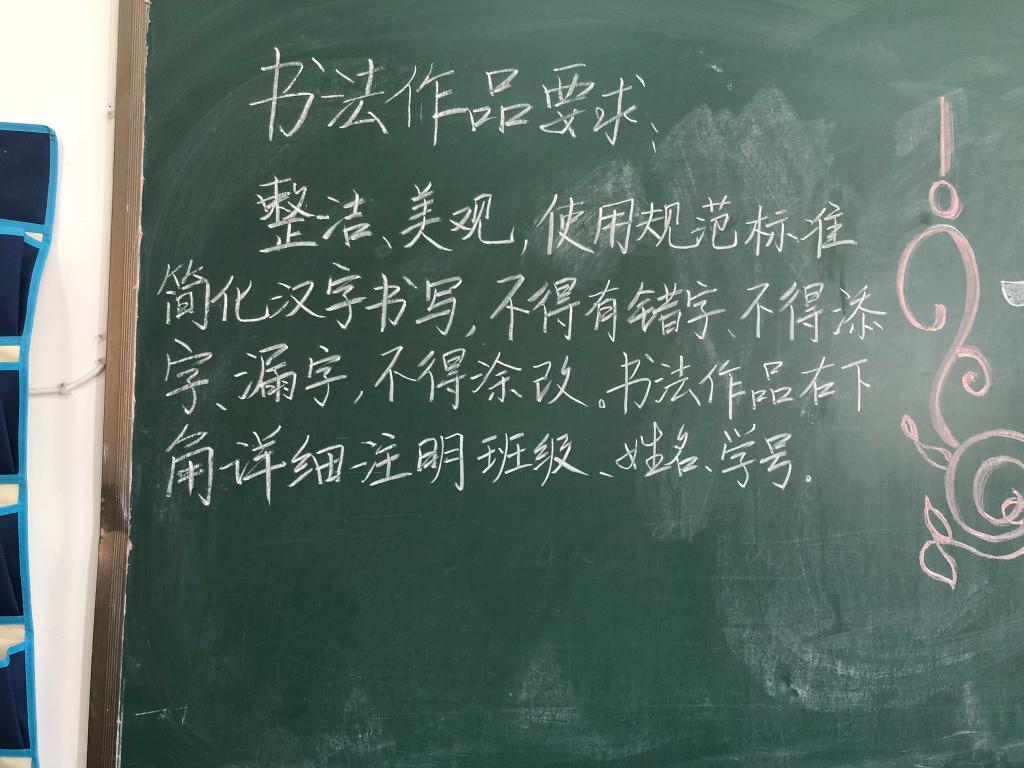 书法作品要求、
整洁、美观,使用规范标准
简化汉字书写,不得有错字、不得添
字、漏字,不得涂改。书法作品右下
角详细注明班级、姓名、学号。